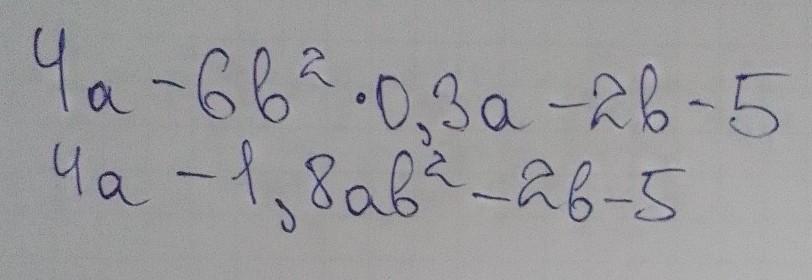 4a - 6b² · 0,3a - 2b - 5
4a - 1,8ab² - 2b - 5